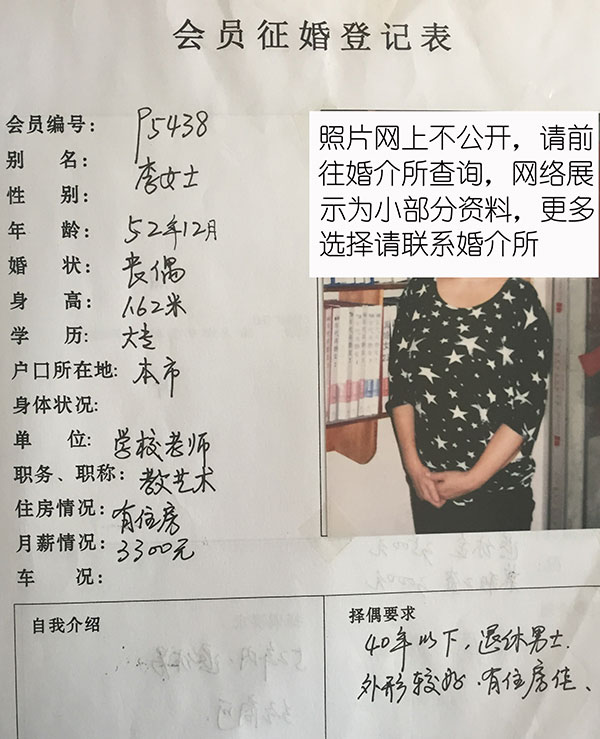 会员征婚登记表
会员编号： P5438
别 名： 李女士
性 别：
年 龄： 52年12月
婚 状： 丧偶
身 高： 1.62米
学 历： 大专
户口所在地: 本市
身体状况:
单 位: 学校老师
职务、职称: 教艺术
住房情况: 有住房
月薪情况: 3300元
车 况：
照片网上不公开，请前
往婚介所查询，网络展
示为小部分资料，更多
选择请联系婚介所
自我介绍
择偶要求
40年以下，退休男士.
外形较好.有住房佳、